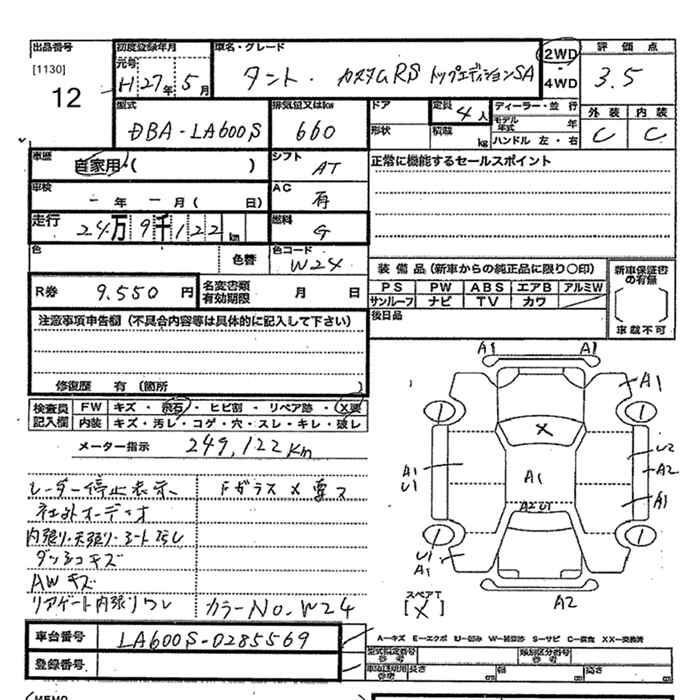 出品番号 初度登録年月 車名・グレード 2WD 評価点
[1130] 元号
12 H 27年 5月 タント・カスタムRS トップエディションSA 4WD 3.5
型式 排気量又はkw ドア 定員 4人 ディーラー・並行 外装 内装
DBA-LA600S 660 形状 積載 kg モデル年式 年 C C
ハンドル 左・右
車歴 自家用・( ) シフト AT 正常に機能するセールスポイント
車検 ー年 ー月( 日) AC 有
走行 24万9千122km 燃料 G
色 色替 色コード W24
装備品(新車からの純正品に限り〇印) 新車保証書の有無
R券 9.550円 名変書類有効期限 月 日 PS PW ABS エアB アルミW
サンルーフ ナビ TV カワ
注意事項申告欄(不具合内容等は具体的に記入して下さい) 後日品 車載不可
修復歴 有(箇所 )
検査員 FW キズ・飛石・ヒビ割・リペア跡・X要
記入欄 内装 キズ・汚レ・コゲ・穴・スレ・キレ・破レ
メーター指示 249,122Km
A1 A1
A1
X
A1 U1
A1
U2
A2
A1
A2 U1
U1 A1
A2
メーター停止表示 Fガラス X要ス
社外オーディオ
内張り・天張り・シート汚レ
ダッシュキズ
AWキズ
リアゲート内張りワレ カラーNo.W24
スペアT
[X]
車台番号 LA600S-0285569
A－キズ E－エクボ U－凹み W－補修跡 S－サビ C－腐食 XX－交換済
登録番号 型式指定番号 参考 類別区分番号 参考
車検証記入参考 長さ cm 幅 cm 高さ cm
MEMO